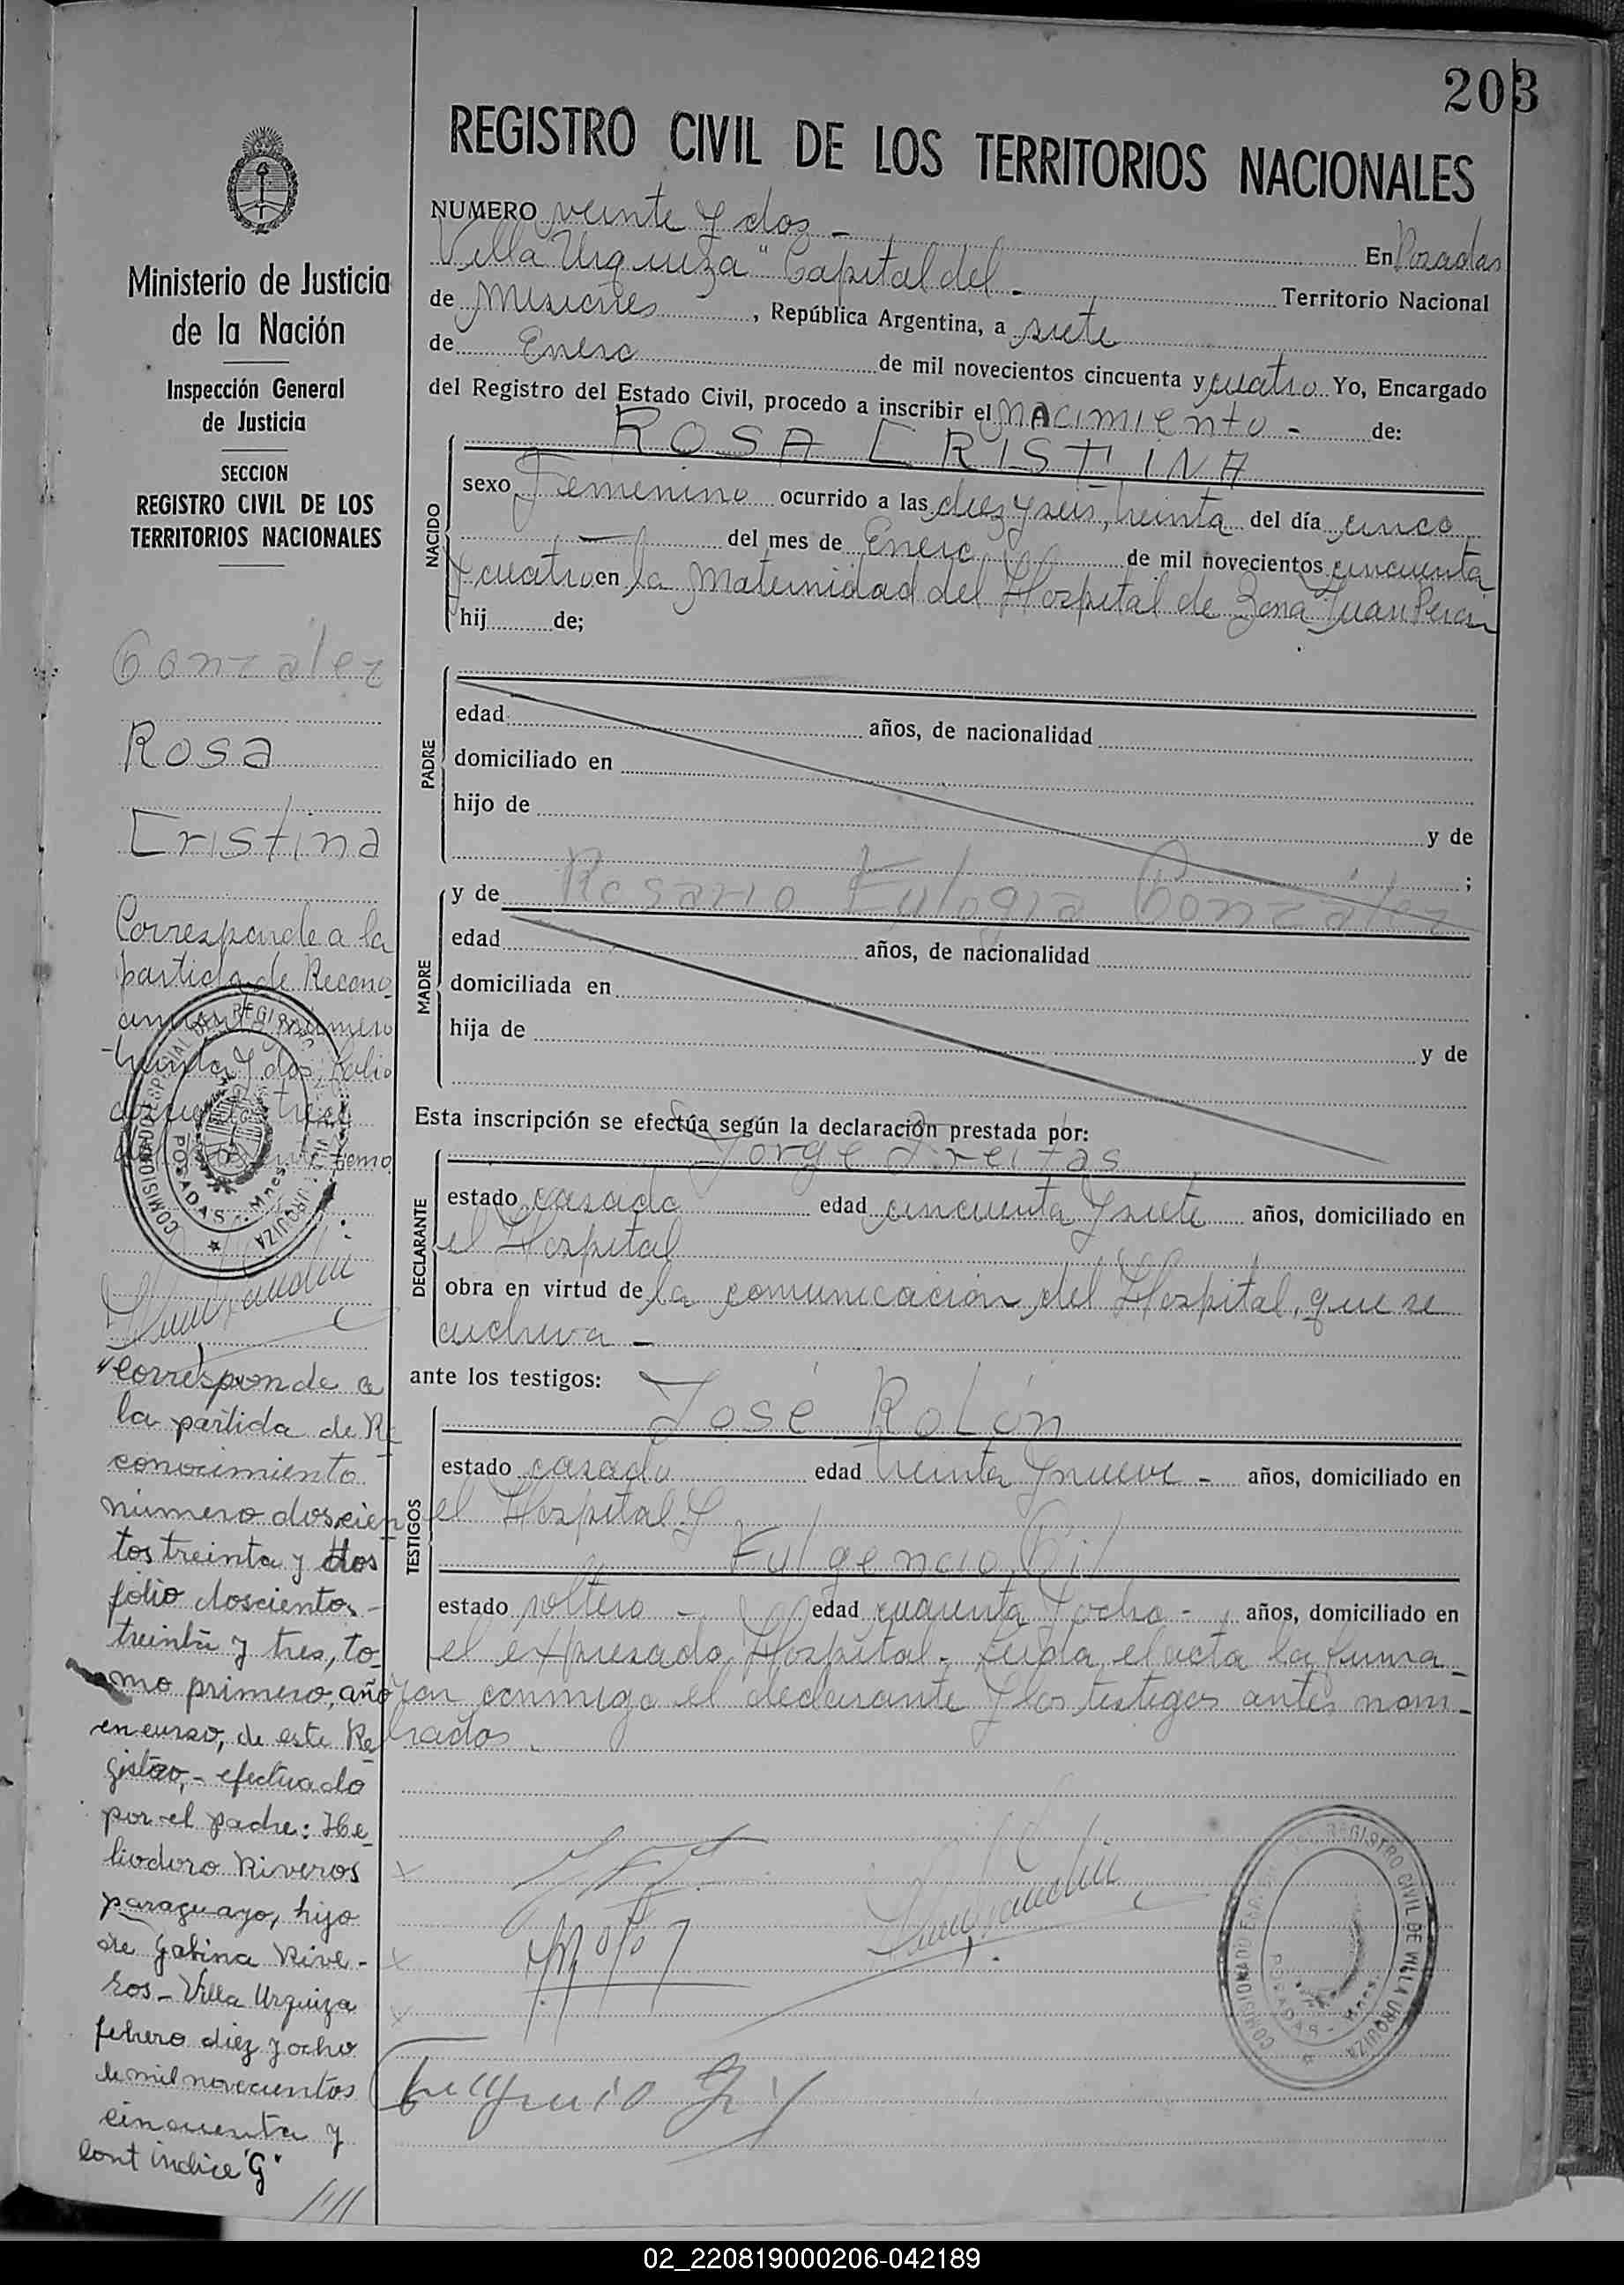 203
REGISTRO CIVIL DE LOS TERRITORIOS NACIONALES
Ministerio de Justicia
de la Nación
Inspección General
de Justicia
SECCION
REGISTRO CIVIL DE LOS
TERRITORIOS NACIONALES
Gonzalez
Rosa
Cristina
Corresponde a la
partida de Recono-
cimiento número
treinta y dos, folio
Corresponde a
la partida de Re
conocimiento
número doscien
tos treinta y dos
folio doscientos
treinta y tres, to-
mo primero, año
en curso, de este Re
gistro, - efectuado
por el padre: He
liodoro Riveros
paraguayo, hijo
de Gabina Rive-
ros - Villa Urquiza
febrero diez y ocho
de mil novecientos
cincuenta y
Cont indice "G"
NUMERO veinte y dos - En Posadas
Villa Urquiza" Capital del - Territorio Nacional
de Misiones , República Argentina, a siete
de Enero de mil novecientos cincuenta y cuatro Yo, Encargado
del Registro del Estado Civil, procedo a inscribir el NACIMIENTO - de:
ROSA CRISTINA
NACIDO
sexo Femenino ocurrido a las diez y seis, treinta del día cinco
— del mes de Enero de mil novecientos cincuenta
y cuatro en la Maternidad del Hospital de Zona Juan Perón
hij de;
PADRE
edad años, de nacionalidad
domiciliado en
hijo de y de
;
MADRE
y de Rosario Eulogia González
edad años, de nacionalidad
domiciliada en
hija de y de
Esta inscripción se efectúa según la declaración prestada por:
DECLARANTE
Jorge Freitas
estado casado edad cincuenta y siete años, domiciliado en
el Hospital
obra en virtud de la comunicación del Hospital, que se
archiva -
ante los testigos:
TESTIGOS
José Rolón
estado casado edad treinta y nueve - años, domiciliado en
el Hospital y
Fulgencio Gil
estado soltero - edad cuarenta y ocho - , años, domiciliado en
el expresado Hospital. Leida el acta la firma-
ron conmigo el declarante y los testigos antes nom-
brados.
COMISIONADO ESPECIAL DEL REGISTRO CIVIL DE VILLA URQUIZA
POSADAS - Mnes.
COMISIONADO ESPECIAL DEL REGISTRO CIVIL DE VILLA URQUIZA
POSADAS - Mnes.
Fulgencio Gil
02_220819000206-042189